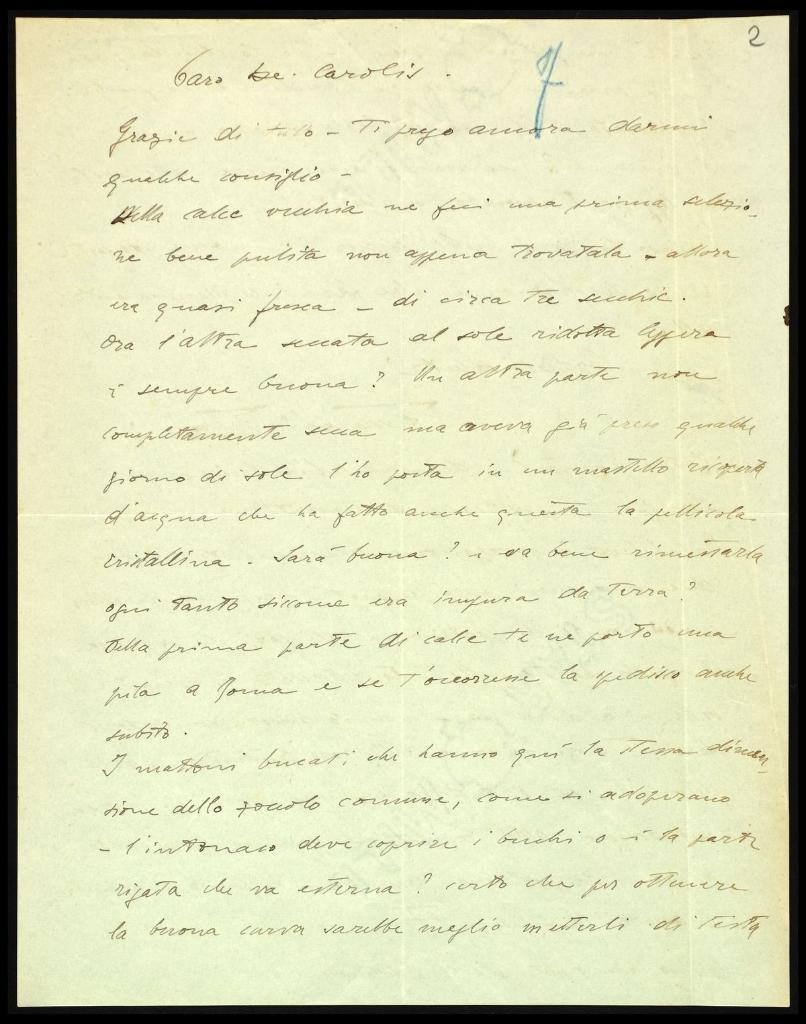 2
7
Caro De Carolis.
Grazie di tutto – Ti prego ancora darmi
qualche consiglio –
Della calce vecchia ne feci una prima selezio-
ne bene pulita non appena trovatala – allora
era quasi fresca – di circa tre secchie.
Ora l'altra seccata al sole ridotta
è sempre buona? Un altra parte non
completamente secca ma aveva già preso qualche
giorno di sole l'ho posta in un mastello ricoperta
d'acqua che ha fatto anche questa la pellicola
cristallina. Sarà buona? e va bene rimestarla
ogni tanto siccome era impura da terra?
Della prima parte di calce te ne porto una
pila a Roma e se t'occoresse la spedisco anche
subito.
I mattoni bucati che hanno quì la stessa dimen-
sione dello zoccolo comune, come si adoperano
– l'intonaco deve coprire i buchi o è la parte
rigata che va esterna? certo che per ottenere
la buona curva sarebbe meglio metterli di testa